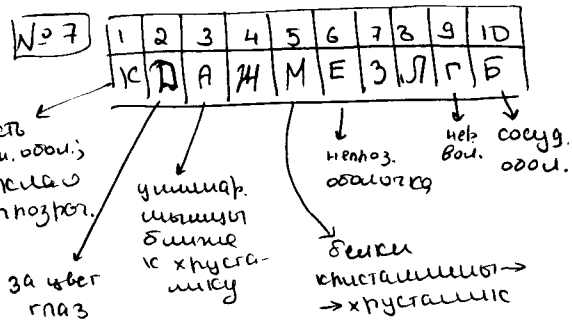 № 7
1 2 3 4 5 6 7 8 9 10
К D А Ж М Е З Л Г Б
прозрач.
за цвет
глаз
цилиар.
мышцы
ближе
к хруста-
лику
белки
кристаллины →
→ хрусталик
непроз.
оболочка
нер.
вол.
сосуд.
обол.